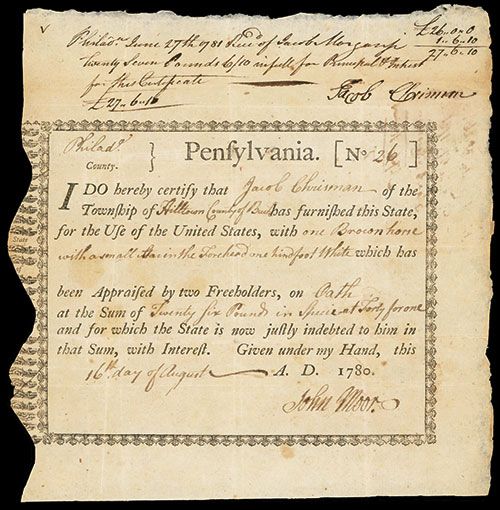 £26-0-0
1-6-10
27-6-10
Philad.a June 27th 1781 Rec.d of Jacob Morgan
Twenty Seven Pounds 6/10 in full for Principal & Intrest
for this Certificate
£27-6-10
Jacob Chrisman
Philad.a
County. } Penſylvania. [No 26]
I DO hereby certify that Jacob Chrisman of the
Township of Hilltown County of Bucks has furnished this State,
for the Uſe of the United States, with one Brown horse
with a small Star in the Forehead one hind foot White which has
been Appraised by two Freeholders, on Oath
at the Sum of Twenty six Pound in Specie at Forty for one
and for which the State is now juſtly indebted to him in
that Sum, with Intereſt. Given under my Hand, this
16th day of August A. D. 1780.
John Moor
State